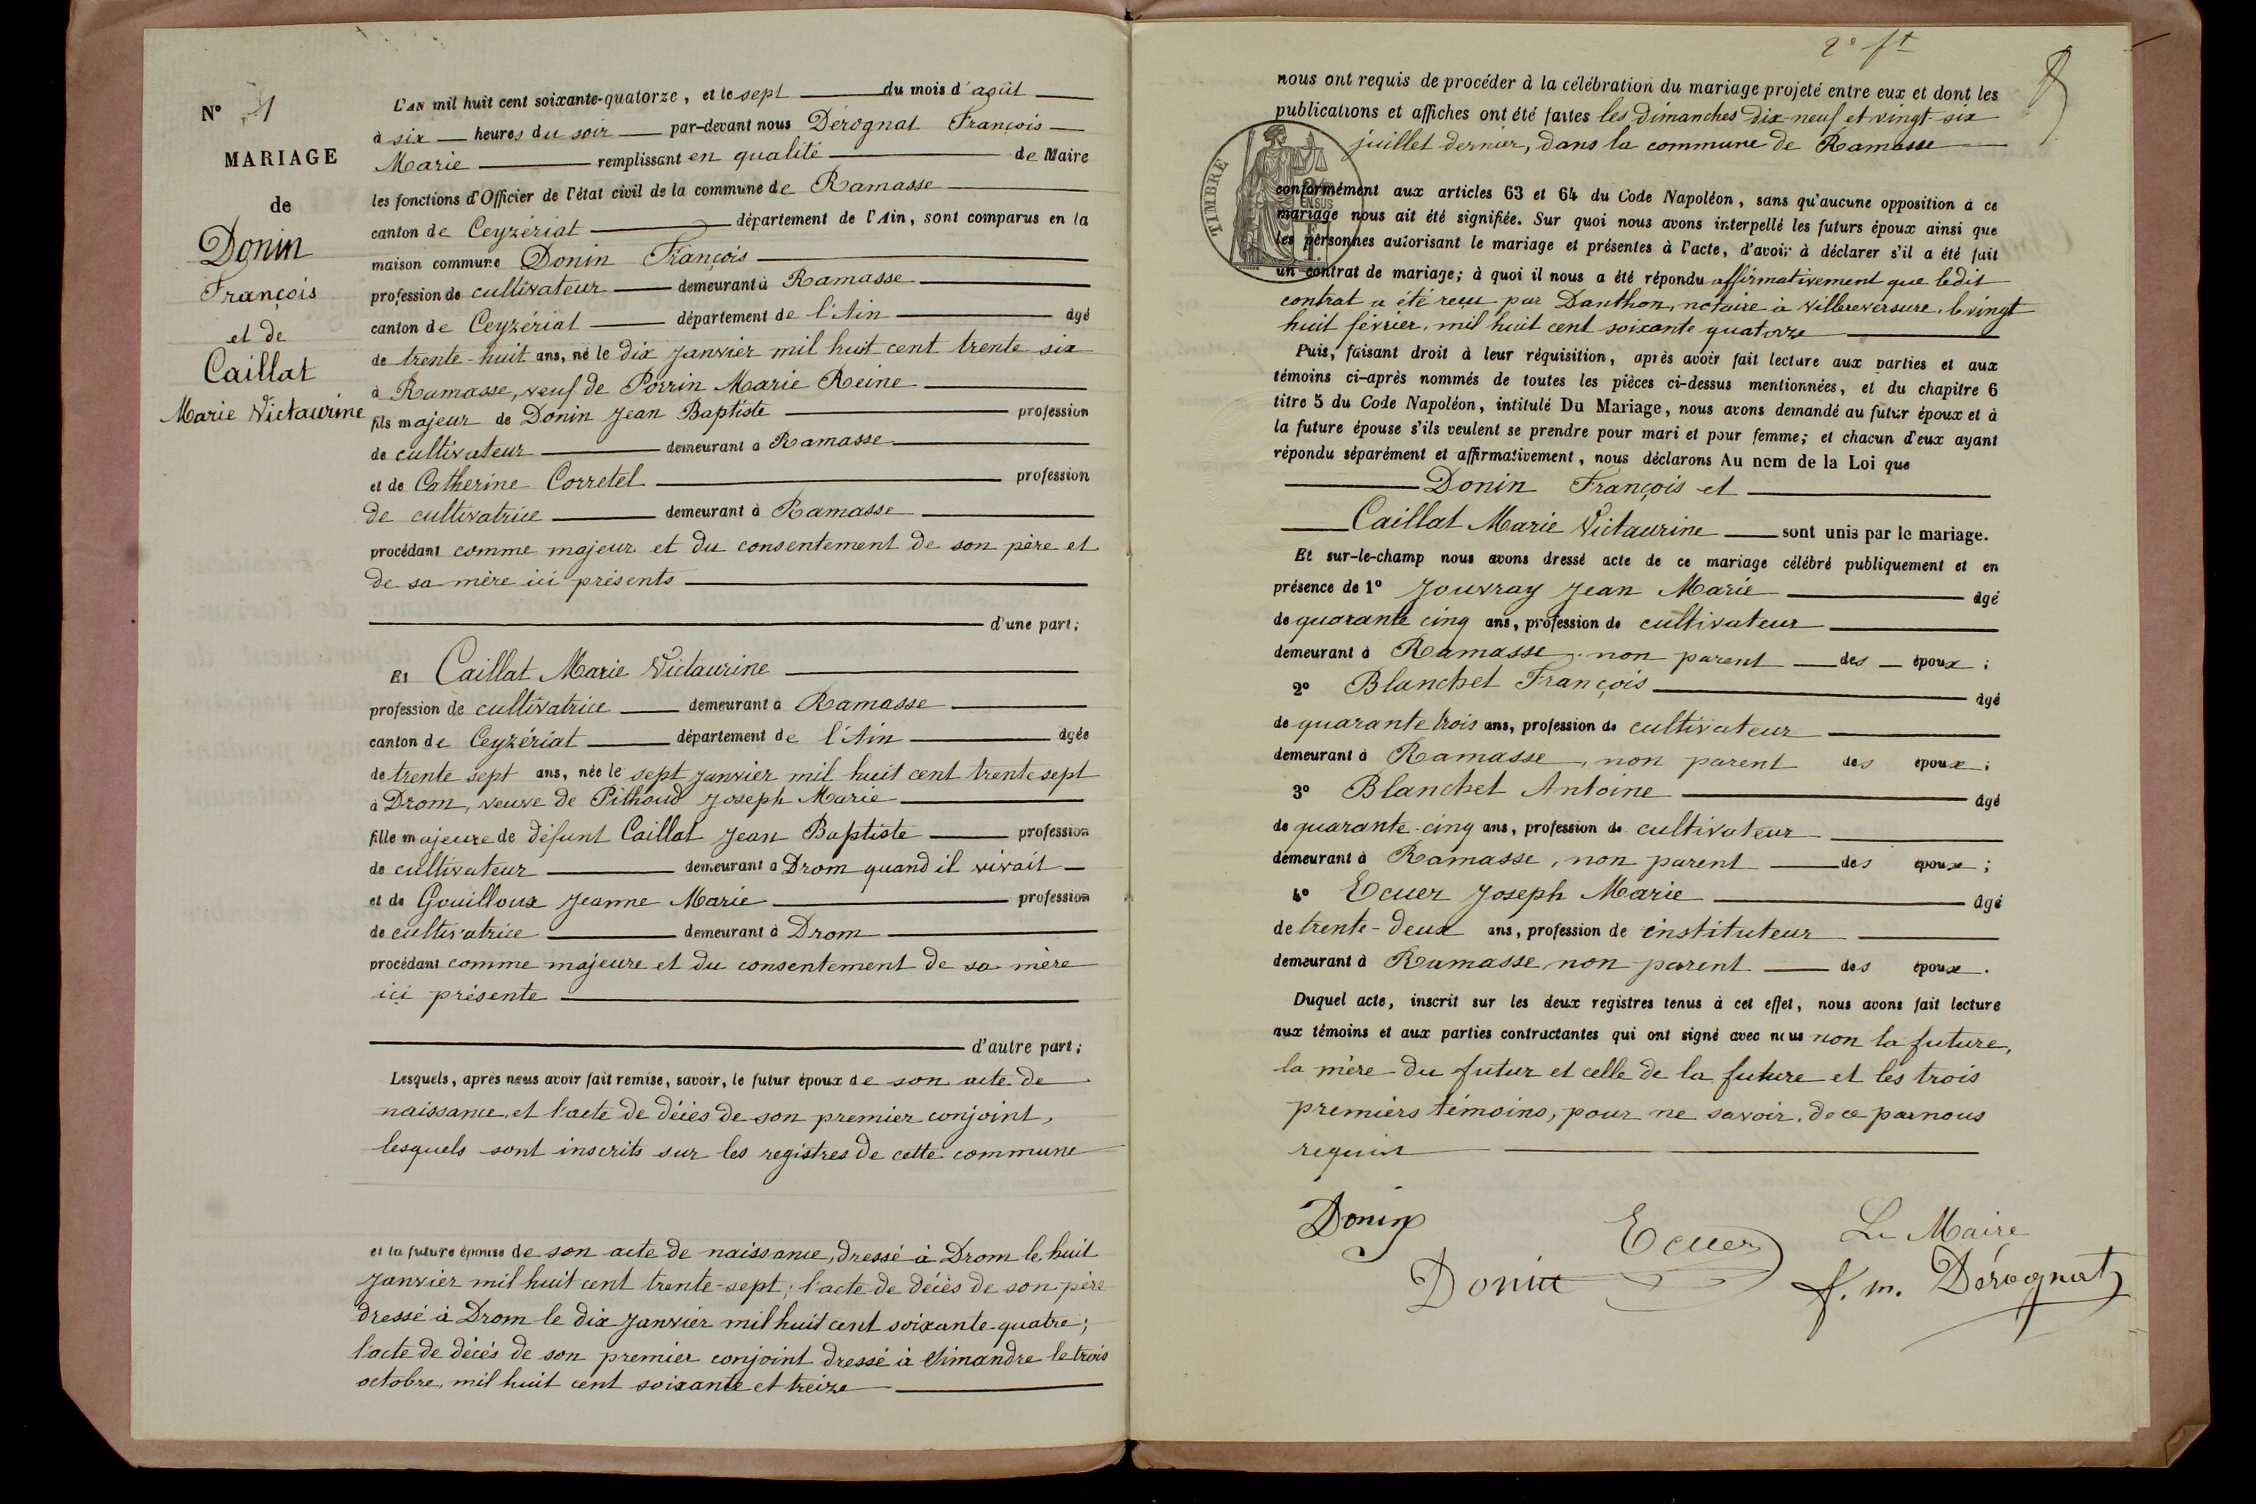 N° 4
MARIAGE
de
Donin
François
et de
Caillat
Marie Victaurine
L'AN mil huit cent soixante-quatorze, et le sept du mois d'août
à six heures du soir par-devant nous Dérognat François
Marie remplissant en qualité de Maire
les fonctions d'Officier de l'état civil de la commune de Ramasse
canton de Ceyzériat département de l'Ain, sont comparus en la
maison commune Donin François
profession de cultivateur demeurant à Ramasse
canton de Ceyzériat département de l'Ain âgé
de trente-huit ans, né le dix janvier mil huit cent trente six
à Ramasse, veuf de Porrin Marie Reine
fils majeur de Donin Jean Baptiste profession
de cultivateur demeurant à Ramasse
et de Catherine Corretel profession
de cultivatrice demeurant à Ramasse
procédant comme majeur et du consentement de son père et
de sa mère ici présents
d'une part;
Et Caillat Marie Victaurine
profession de cultivatrice demeurant à Ramasse
canton de Ceyzériat département de l'Ain âgée
de trente sept ans, née le sept janvier mil huit cent trente sept
à Drom, veuve de Pithoud Joseph Marie
fille majeure de défunt Caillat Jean Baptiste profession
de cultivateur demeurant à Drom quand il vivait
et de Gouilloux Jeanne Marie profession
de cultivatrice demeurant à Drom
procédant comme majeure et du consentement de sa mère
ici présente
d'autre part;
Lesquels, après nous avoir fait remise, savoir, le futur époux de son acte de
naissance, et l'acte de décès de son premier conjoint,
lesquels sont inscrits sur les registres de cette commune
et la future épouse de son acte de naissance, dressé à Drom le huit
janvier mil huit cent trente-sept; l'acte de décès de son père
dressé à Drom le dix janvier mil huit cent soixante-quatre;
l'acte de décès de son premier conjoint dressé à Simandre le trois
octobre, mil huit cent soixante et treize
2e ft
nous ont requis de procéder à la célébration du mariage projeté entre eux et dont les
publications et affiches ont été faites les dimanches dix-neuf et vingt-six
juillet dernier, dans la commune de Ramasse
TIMBRE
conformément aux articles 63 et 64 du Code Napoléon, sans qu'aucune opposition à ce
mariage nous ait été signifiée. Sur quoi nous avons interpellé les futurs époux ainsi que
les personnes autorisant le mariage et présentes à l'acte, d'avoir à déclarer s'il a été fait
un contrat de mariage; à quoi il nous a été répondu affirmativement que ledit
contrat a été reçu par Danthon, notaire à Villereversure, le vingt
huit février, mil huit cent soixante quatorze
Puis, faisant droit à leur réquisition, après avoir fait lecture aux parties et aux
témoins ci-après nommés de toutes les pièces ci-dessus mentionnées, et du chapitre 6
titre 5 du Code Napoléon, intitulé Du Mariage, nous avons demandé au futur époux et à
la future épouse s'ils veulent se prendre pour mari et pour femme; et chacun d'eux ayant
répondu séparément et affirmativement, nous déclarons Au nom de la Loi que
Donin François et
Caillat Marie Victaurine sont unis par le mariage.
Et sur-le-champ nous avons dressé acte de ce mariage célébré publiquement et en
présence de 1° Jouvray Jean Marie âgé
de quarante cinq ans, profession de cultivateur
demeurant à Ramasse, non parent des époux;
2° Blanchet François âgé
de quarante trois ans, profession de cultivateur
demeurant à Ramasse, non parent des époux;
3° Blanchet Antoine âgé
de quarante-cinq ans, profession de cultivateur
demeurant à Ramasse, non parent des époux;
4° Ecuer Joseph Marie âgé
de trente-deux ans, profession de instituteur
demeurant à Ramasse, non parent des époux.
Duquel acte, inscrit sur les deux registres tenus à cet effet, nous avons fait lecture
aux témoins et aux parties contractantes qui ont signé avec nous non la future,
la mère du futur et celle de la future et les trois
premiers témoins, pour ne savoir, de ce par nous
requis
Donin
Donin
Ecuer
Le Maire
f. m. Dérognat